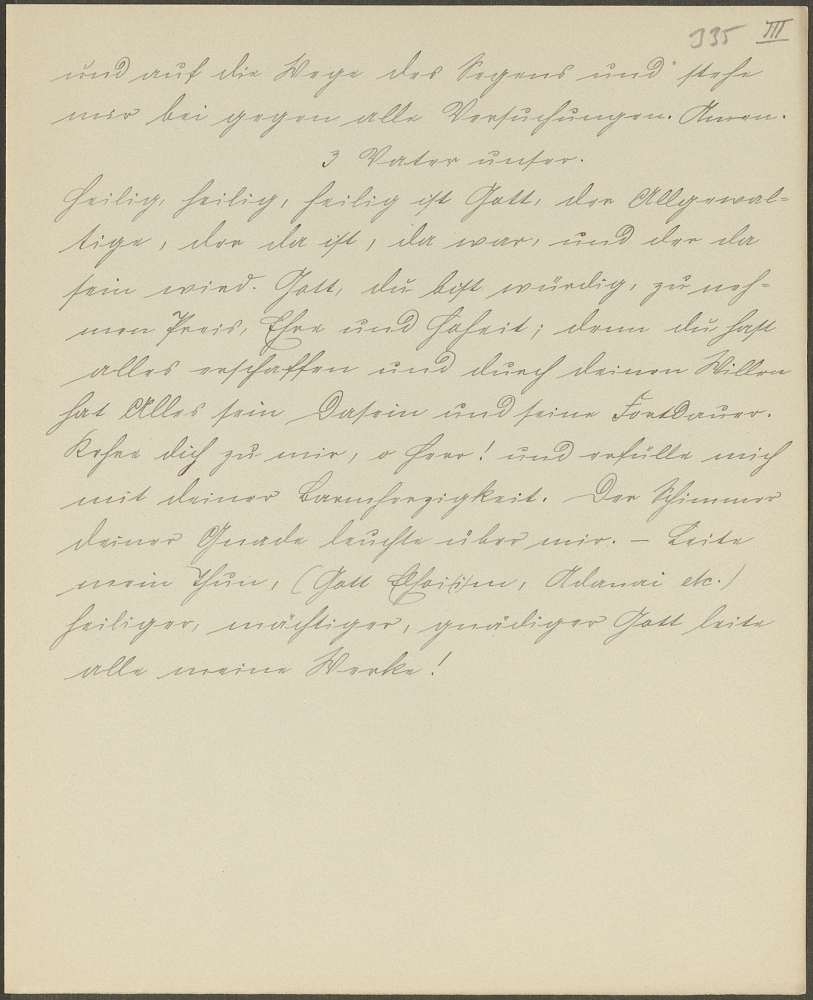 335 III
und auf die Wege des Segens und stehe
mir bei gegen alle Versuchungen. Amen.
3 Vater unser.
Heilig, heilig, heilig ist Gott, der Allgewal=
tige, der da ist, da war, und der da
sein wird. Gott, du bist würdig, zu neh=
men Preis, Ehre und Hoheit; denn du hast
alles erschaffen und durch deinen Willen
hat Alles sein Dasein und seine Fortdauer.
Kehre dich zu mir, o Herr! und erfülle mich
mit deiner Barmherzigkeit. Der Schimmer
deiner Gnade leuchte über mir. – Leite
mein Thun, (Gott, Adanai etc.)
heiliger, mächtiger, gnädiger Gott leite
alle meine Werke!